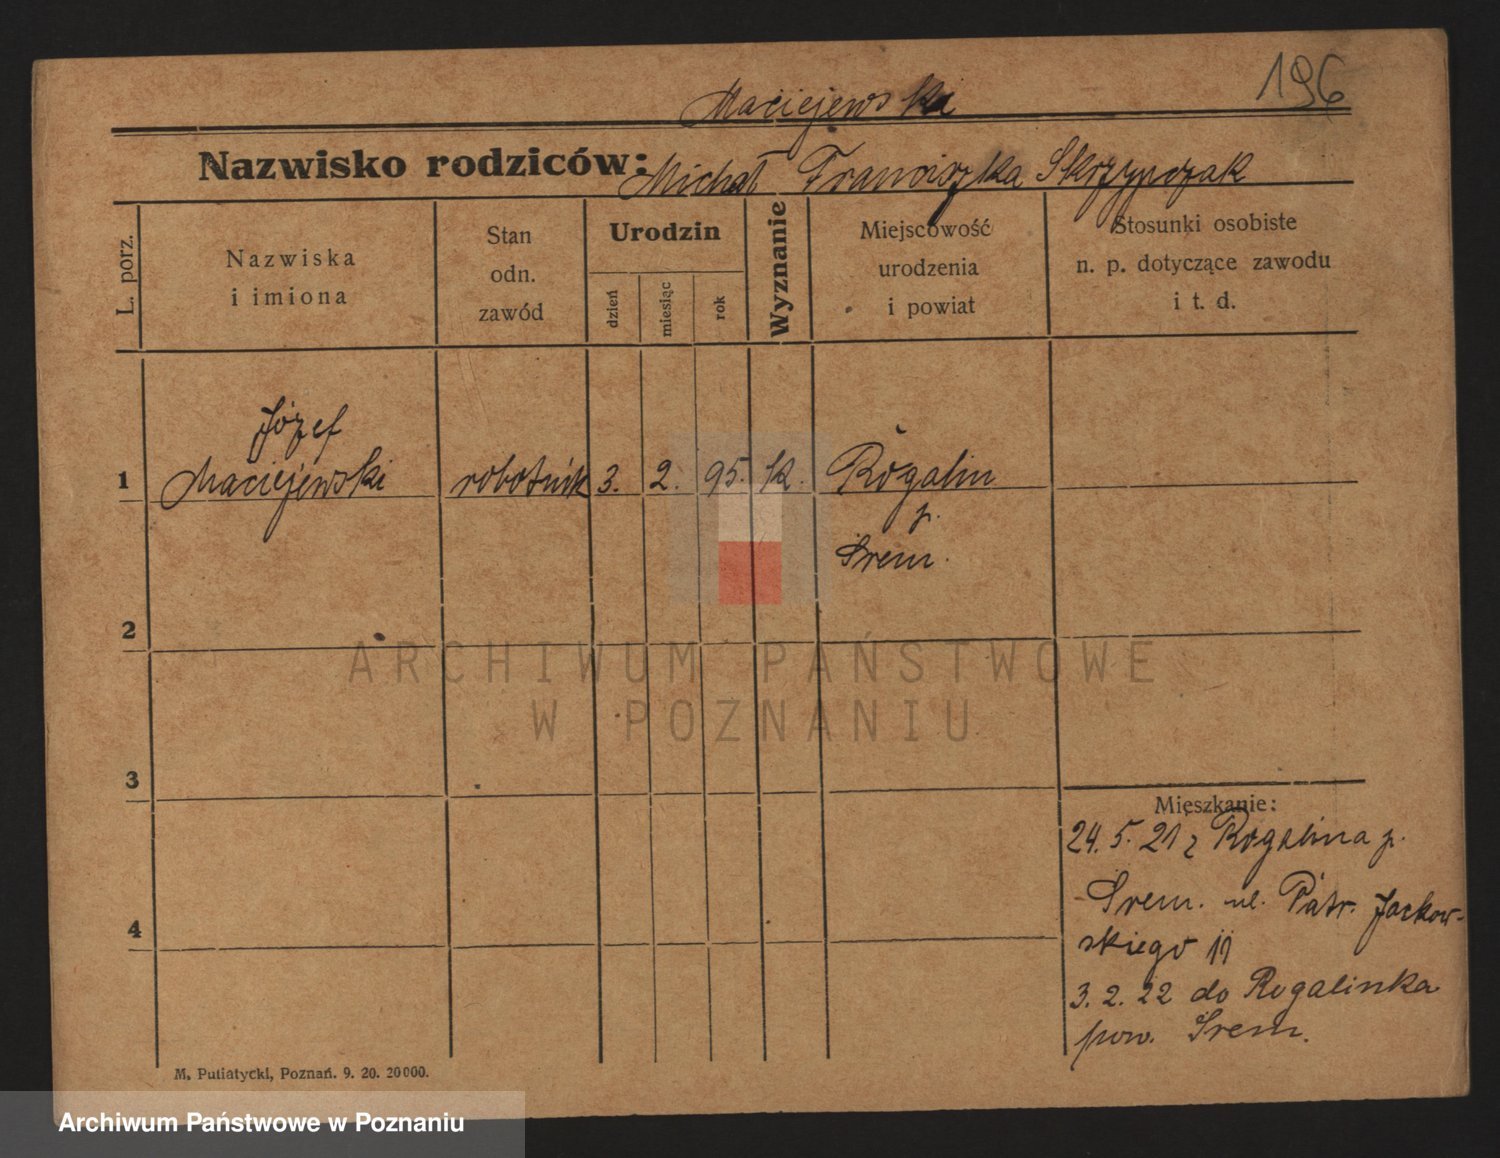 196
Maciejewski
Nazwisko rodziców: Michał Franciszka Skrzypczak
L. porz.
Nazwiska
i imiona
Stan
odn.
zawód
Urodzin
dzień
miesiąc
rok
Wyznanie
Miejscowość
urodzenia
i powiat
Stosunki osobiste
n. p. dotyczące zawodu
i t. d.
Józef
1 Maciejewski robotnik 3. 2. 95. k. Rogalin
p.
Śrem.
2
ARCHIWUM PAŃSTWOWE
W POZNANIU
3
Mieszkanie:
24. 5. 21 z Rogalina p.
Śrem. ul. Patr. Jackow-
4
skiego 11
3. 2. 22 do Rogalinka
pow. Śrem.
M. Putiatycki, Poznań. 9. 20. 20000.
Archiwum Państwowe w Poznaniu